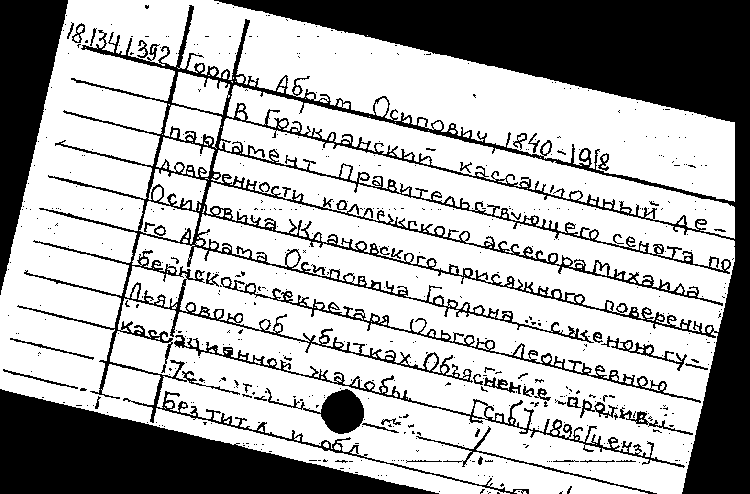 18.134.1.392
Гордон, Абрам Осипович, 1840-1918
В Гражданский кассационный де-
партамент Правительствующего сената по
доверенности коллежского ассесора Михаила
Осиповича Ждановского, присяжного поверенно
го Абрама Осиповича Гордона, с женою гу-
бернского секретаря Ольгою Леонтьевною
Льяновою об убытках. Объяснение против
кассационной жалобы.
[Спб.], 1896 [ценз.]
7с.
Без тит. л. и обл.